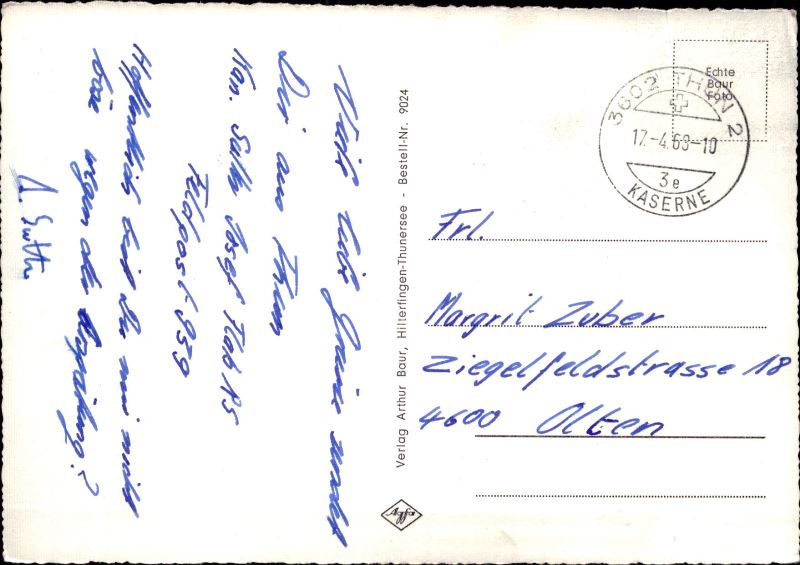 Viele liebe Grüsse sendet
Dir aus Thun
Kan. Sutter Josef Stab 15
Feldpost 959
Hoffentlich bist Du mir nicht
böse wegen der Verspätung?
J. Sutter
Verlag Arthur Baur, Hilterfingen-Thunersee - Bestell-Nr. 9024
Agfa
Echte
Baur
Foto
3602 THUN 2
17.-4.68-10
3e
KASERNE
Frl.
Margrit Zuber
Ziegelfeldstrasse 18
4600 Olten